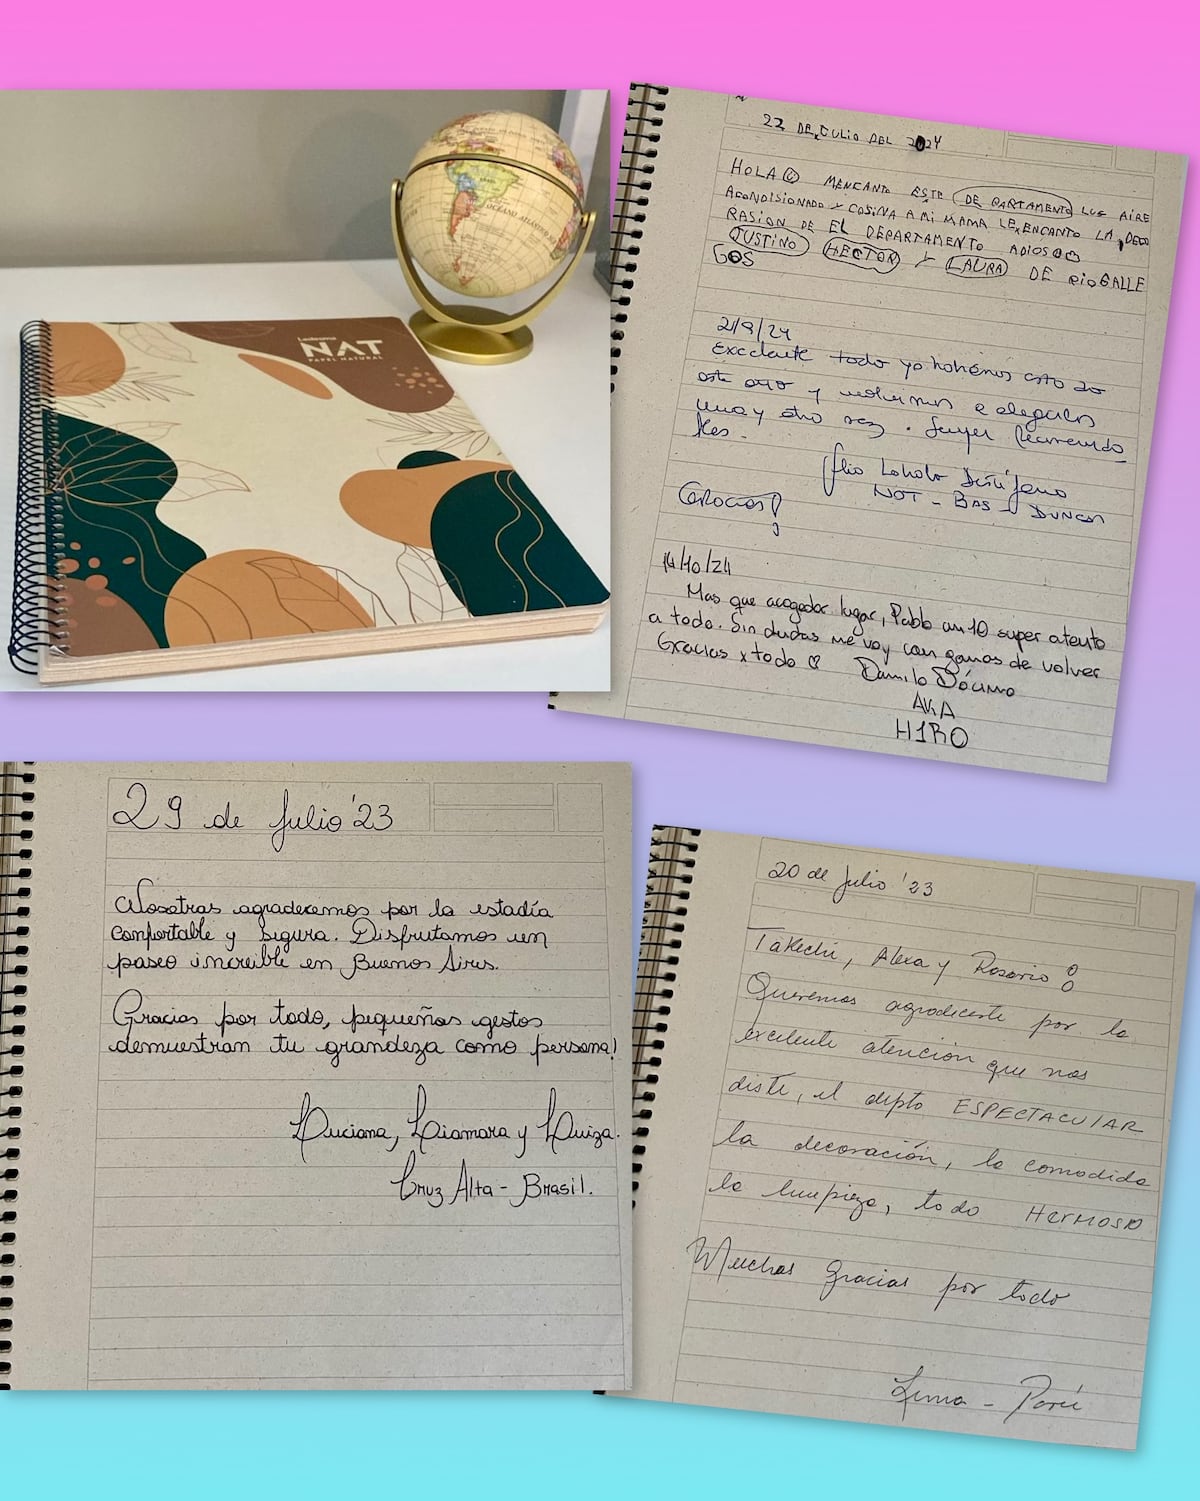 Ledesma
NAT
PAPEL NATURAL
OCÉANO ATLÁ
22 DE JULIO DEL 2024
HOLA MENCANTO ESTE DE PARTAMENTO LUS AIRE
ACONDISIONADO Y COSINA A MI MAMA LE ENCANTO LA DECO
RASION DE EL DEPARTAMENTO ADIOS
JUSTINO HECTOR Y LAURA DE RIO GALLE
GOS
2/9/24
Excelente todo ya habíamos esto do
este año y volvimos a elegirlos
una y otra vez. Super recomenda
bles.
NOT - BAS - DUNCAN
Gracias!
14/10/24
Mas que acogedor lugar, Pablo un 10 super atento
a todo. Sin dudas me voy con ganas de volver
Gracias x todo ♡ Damilo Dócimo
AKA
H1RO
29 de Julio '23
Nosotras agradecemos por la estadía
confortable y segura. Disfrutamos un
paseo increíble en Buenos Aires.
Gracias por todo, pequeños gestos
demuestran tu grandeza como persona!
Luciana, Liamara y Luiza.
Cruz Alta - Brasil.
20 de Julio '23
Takechi, Alexa y Rosario
Queremos agradecerte por la
excelente atención que nos
diste, el depto ESPECTACULAR
la decoración, la comodida
la limpieza, todo HERMOSO
Muchas gracias por todo
Lima - Perú